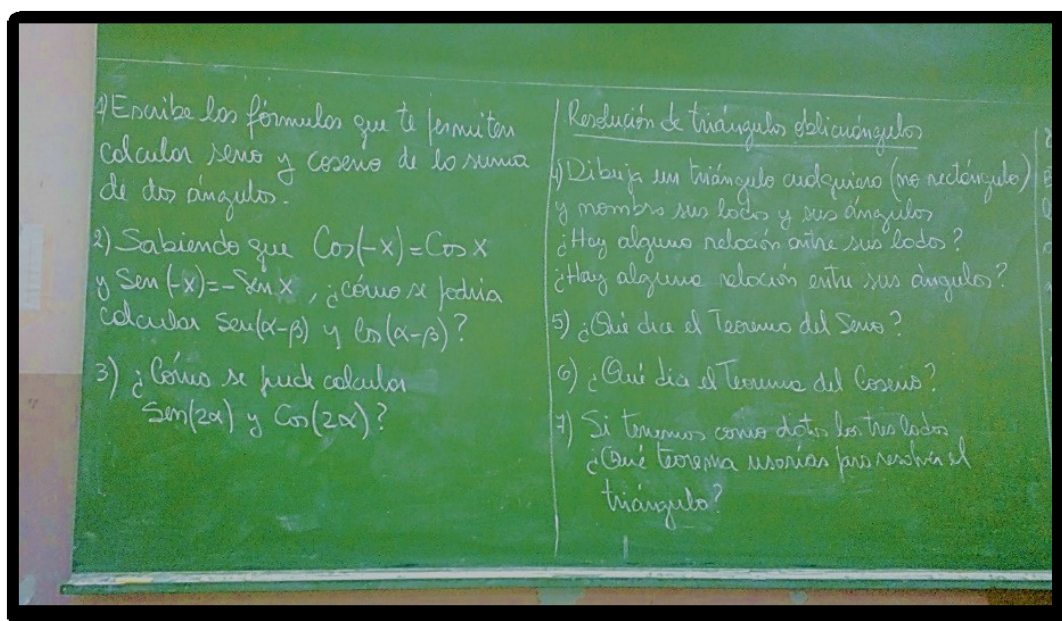 1) Escribe las fórmulas que te permiten
calcular seno y coseno de la suma
de dos ángulos.
2) Sabiendo que Cos(-x)=Cos x
y Sen(-x)=-Sen x, ¿cómo se podría
calcular Sen(α-β) y Cos(α-β)?
3) ¿Cómo se puede calcular
Sen(2α) y Cos(2α)?
Resolución de triángulos oblicuángulos
4) Dibuja un triángulo cualquiera (no rectángulo)
y nombra sus lados y sus ángulos
¿Hay alguna relación entre sus lados?
¿Hay alguna relación entre sus ángulos?
5) ¿Qué dice el Teorema del Seno?
6) ¿Qué dice el Teorema del Coseno?
7) Si tenemos como datos los tres lados
¿Qué teorema usarías para resolver el
triángulo?